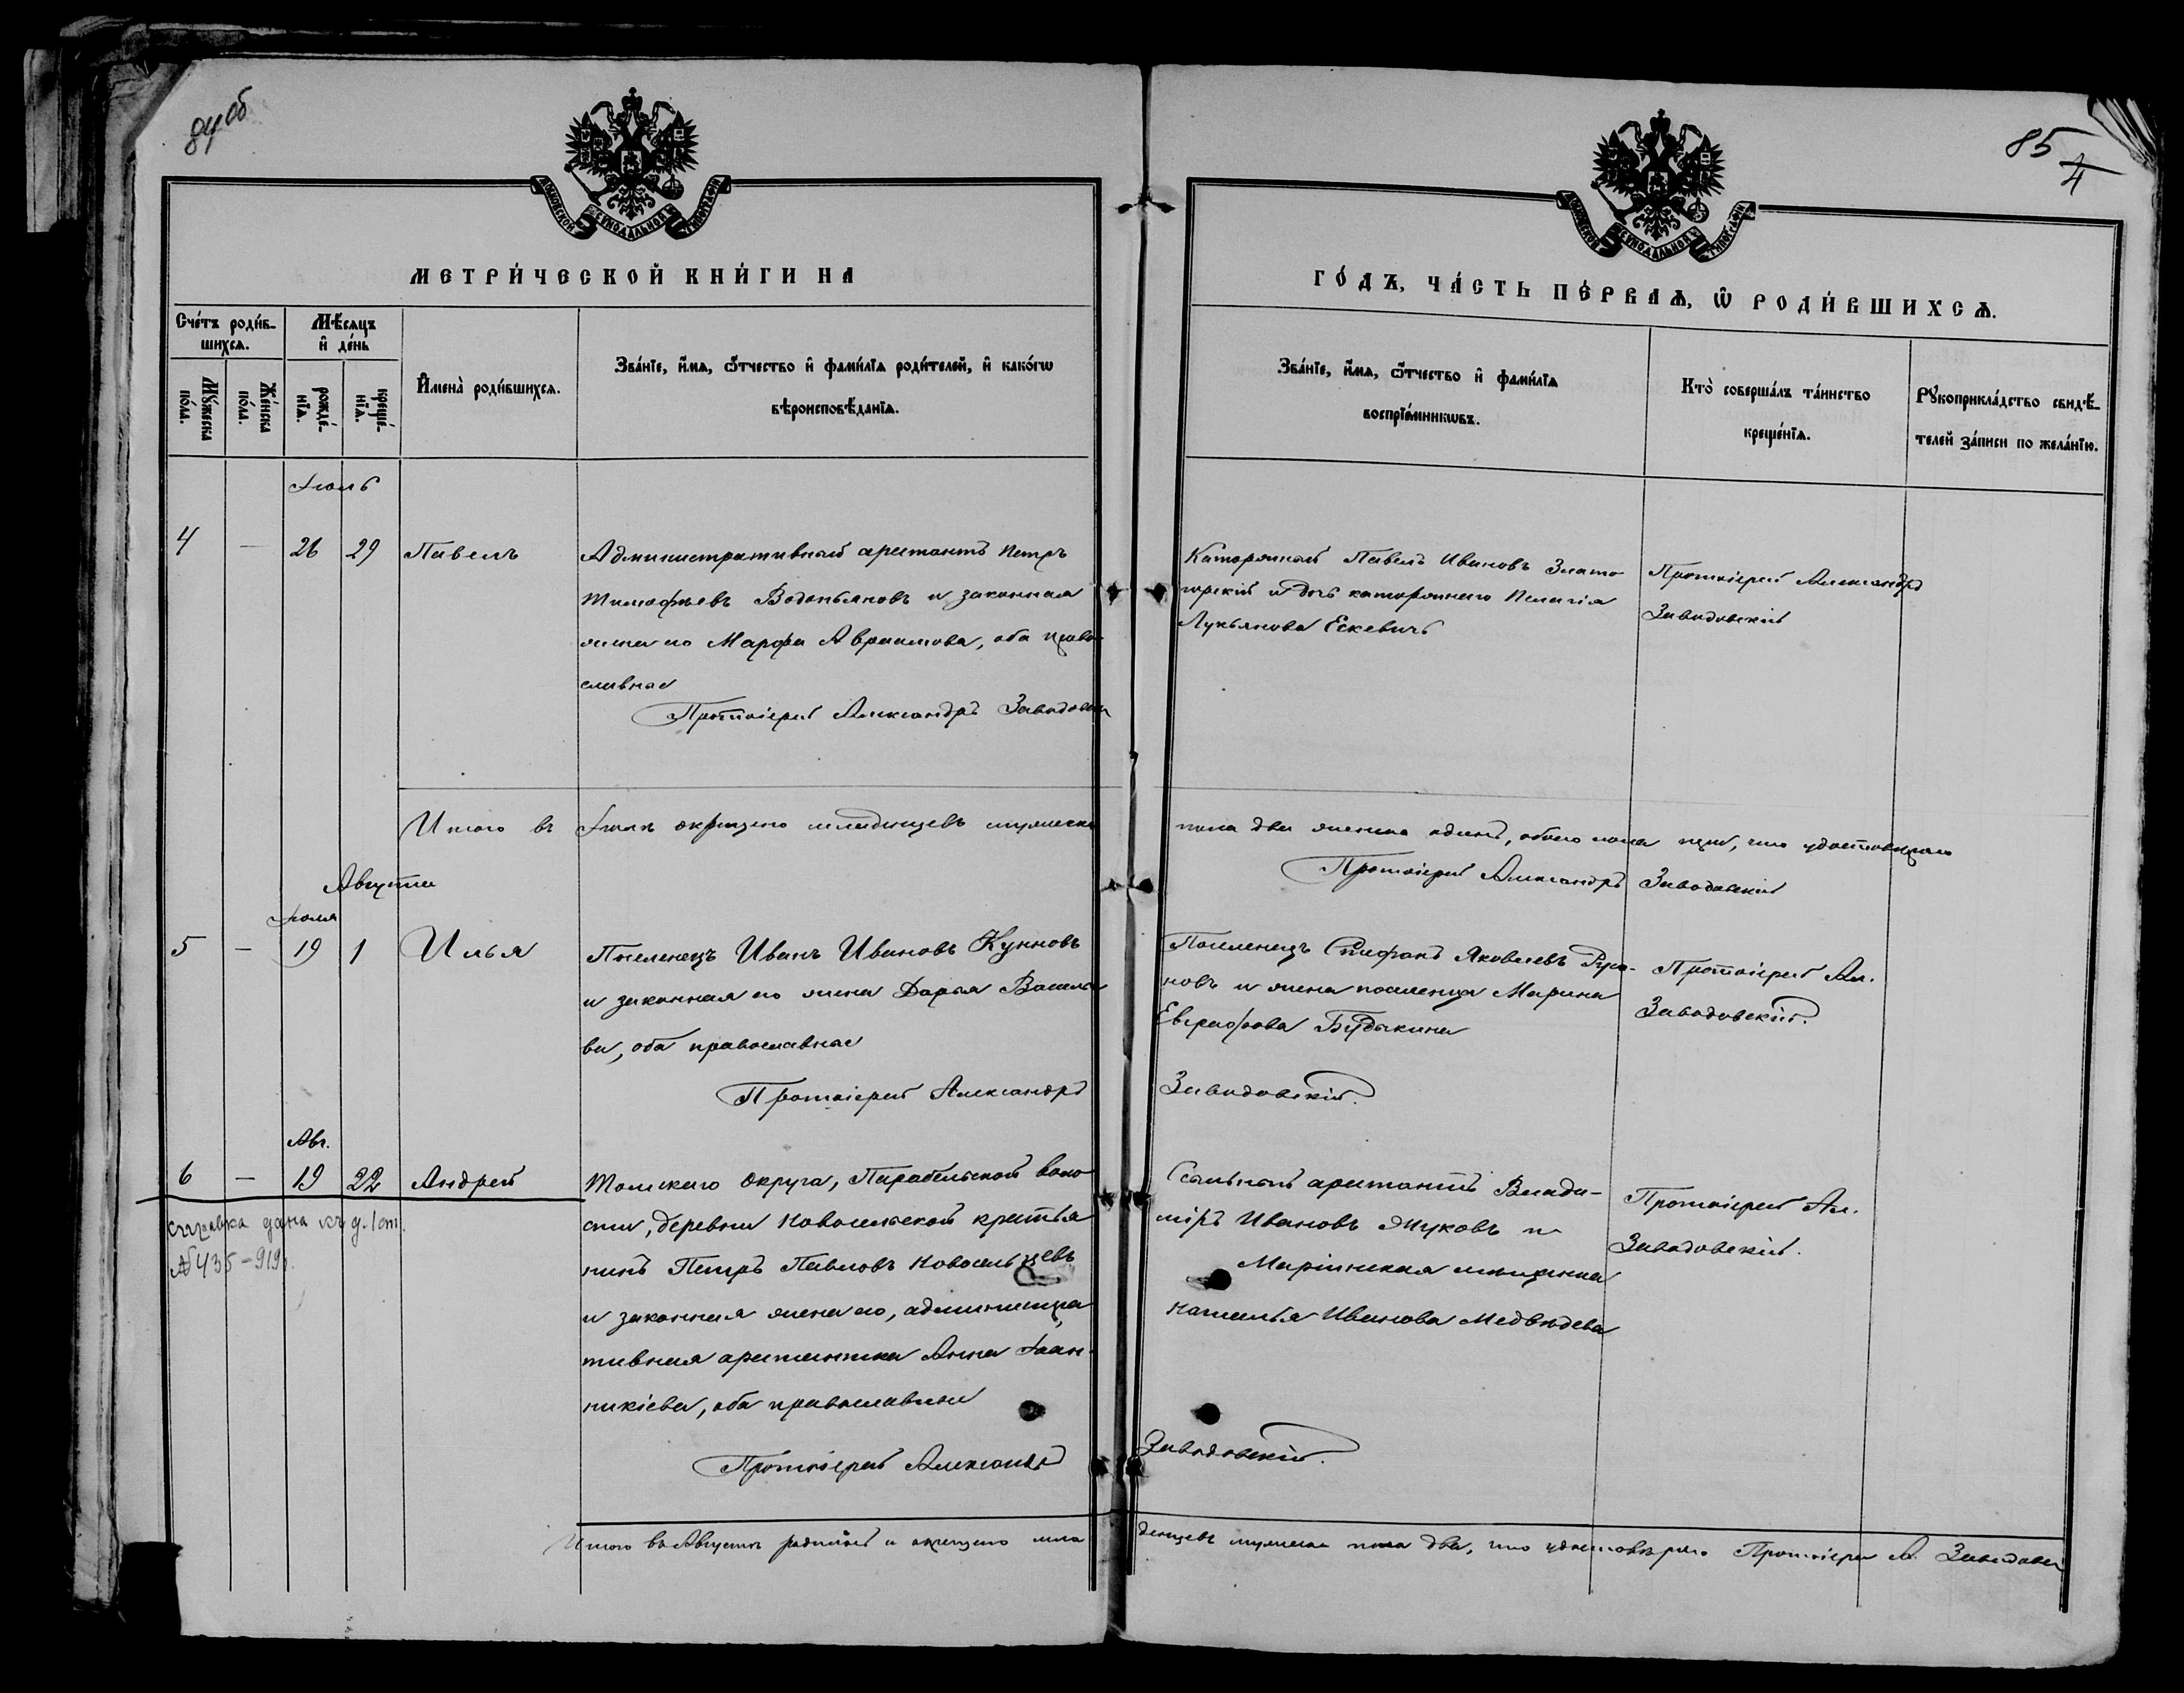 84об
85
4
МОСКОВСКОЙ СѴНОДАЛЬНОЙ ТИПОГРАФІИ
МОСКОВСКОЙ СѴНОДАЛЬНОЙ ТИПОГРАФІИ
МЕТРИ́ЧЕСКОЙ КНИ́ГИ НА
ГО́ДЪ, ЧА́СТЬ ПЕ́РВАѦ, Ѡ҆ РОДИ́ВШИХСѦ.
Сче́тъ роди́в-
шихсѧ.
Мѣ́сѧцъ
и҆ де́нь
Мꙋ́жеска
по́ла.
Же́нска
по́ла.
рожде́-
нїѧ.
креще́-
нїѧ.
И҆мена̀ роди́вшихсѧ.
Зва́нїе, и҆́мѧ, ѻ҆́тчество и҆ фами́лїѧ роди́телей, и҆ како́гѡ
вѣроисповѣ́данїѧ.
Зва́нїе, и҆́мѧ, ѻ҆́тчество и҆ фами́лїѧ
воспрїе́мникѡвъ.
Кто̀ соверша́лъ та́инство
креще́нїѧ.
Рꙋкоприкла́дство свидѣ́-
телей за́писи по жела́нїю.
Іюль
4 — 26 29 Павелъ
Административный арестантъ Петръ
Тимофѣевъ Водопьяновъ и законная
жена его Марфа Авраамова, оба право-
славные
Протоіерей Александръ Заводовскій
Каторжный Павелъ Ивановъ Злато-
горскій и дочь каторжнаго Пелагія
Лукьянова Ескевичъ
Протоіерей Александръ
Заводовскій
Итого въ Іюлѣ окрещено младенцевъ мужеска
пола два женска одинъ, обоего пола три, что удостовѣряю
Протоіерей Александръ Заводовскій
Августа
Іюля
5 — 19 1 Илья
Поселенецъ Иванъ Ивановъ Кунновъ
и законная его жена Дарья Василье
ва, оба православные
Протоіерей Александръ
Поселенецъ Стефанъ Яковлевъ
новъ и жена поселенца Марина
Евграфова Будыкина
Заводовскій.
Протоіерей Ал.
Заводовскій.
Авг.
6 — 19 22 Андрей
Томскаго округа, Парабельской воло-
сти, деревни Новосельской крестья
нинъ Петръ Павловъ Новосельцевъ
и законная жена его, администра
тивная арестантка Анна Іоан-
никіева, оба православные
Протоіерей Александръ
Ссыльный арестантъ Влади-
міръ Ивановъ Жуковъ и
Маріинская мѣщанка
Наталья Иванова Медвѣдева
Заводовскій.
Протоіерей Ал.
Заводовскій.
справка дана къ д. 1 ст.
№ 435-919.
Итого въ Августѣ родилось и окрещено мла
денцевъ мужеска пола два, что удостовѣряю Протоіерей А. Заводовскій